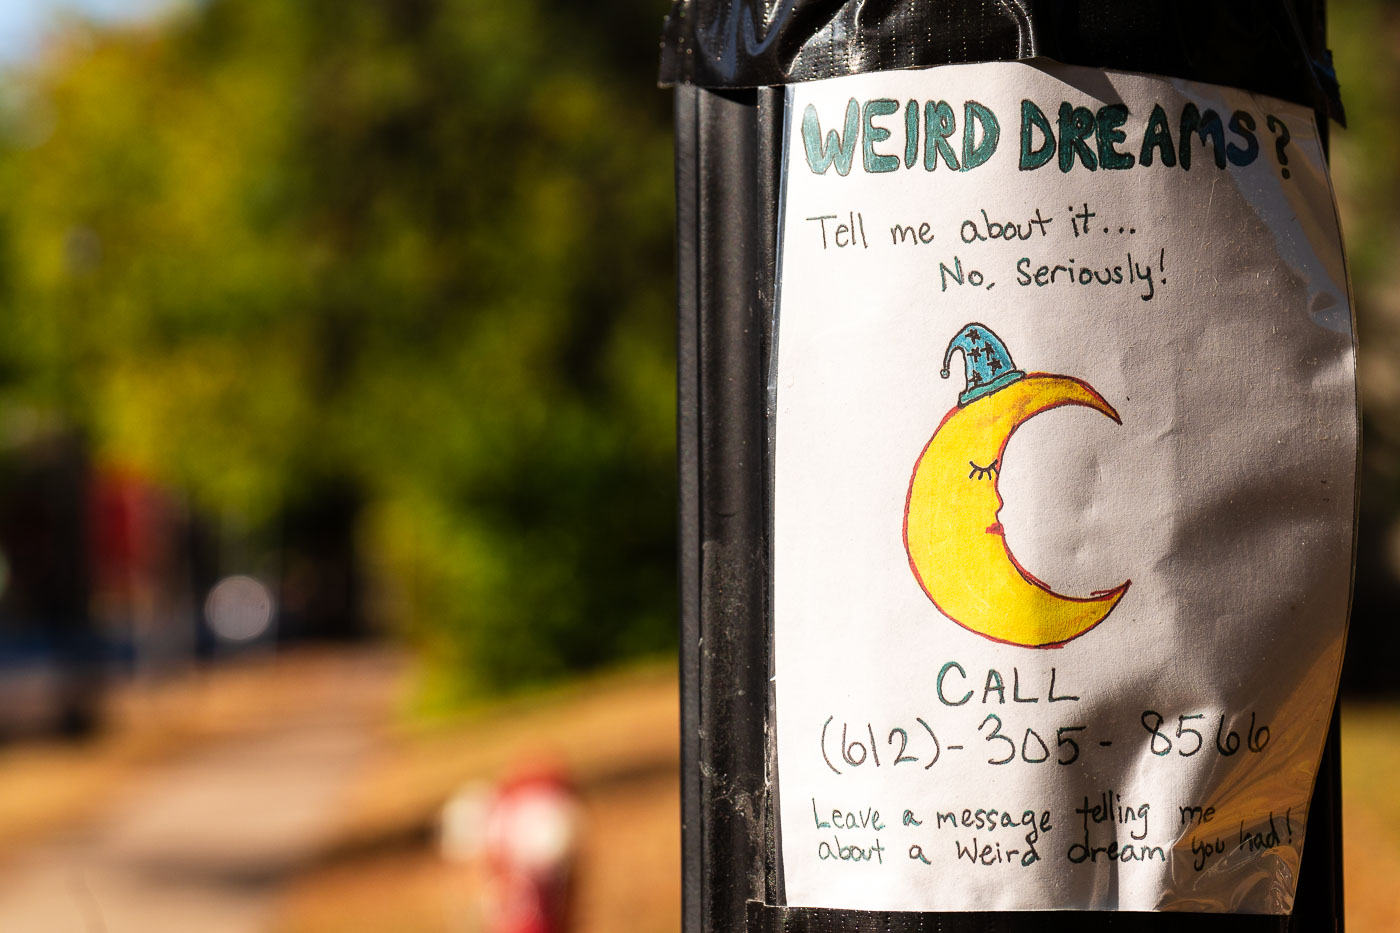 WEIRD DREAMS?
Tell me about it...
No, Seriously!
CALL
(612)-305-8566
Leave a message telling me
about a weird dream you had!